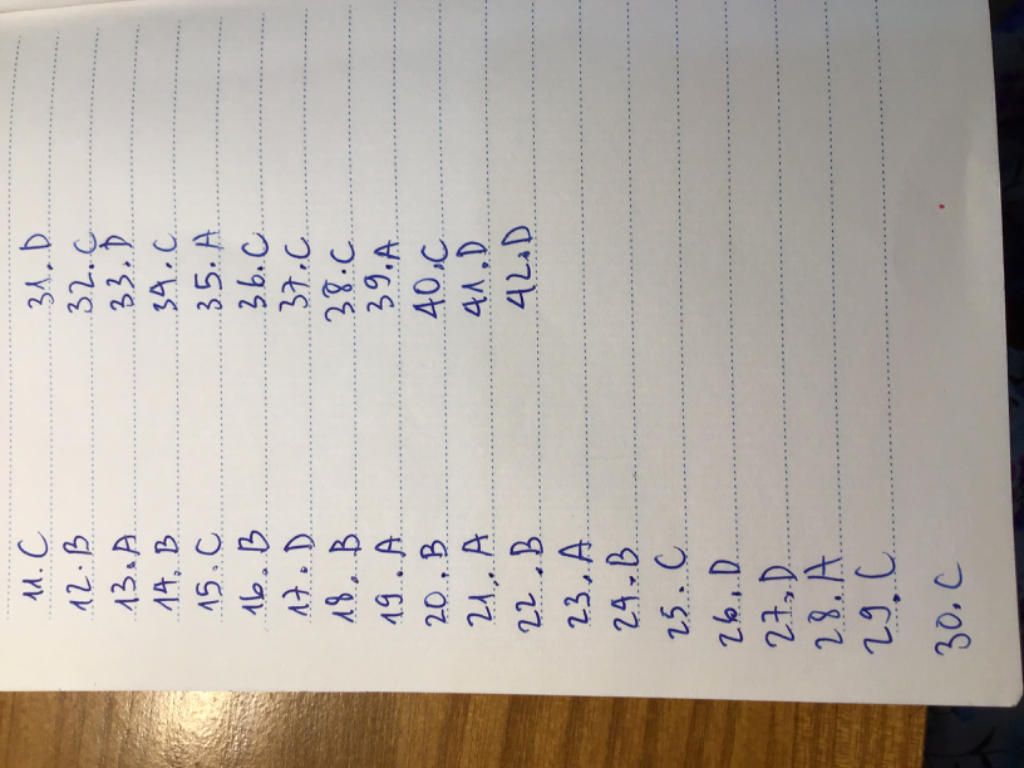 11.C
12.B
13.A
14.B
15.C
16.B
17.D
18.B
19.A
20.B
21.A
22.B
23.A
24.B
25.C
26.D
27.D
28.A
29.C
30.C
31.D
32.C
33.D
34.C
35.A
36.C
37.C
38.C
39.A
40.C
41.D
42.D